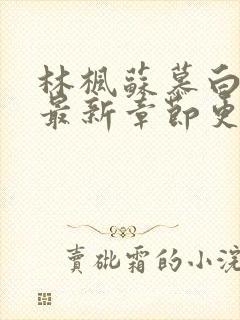 林楓蘇慕白
最新章節更
賣砒霜的小浣